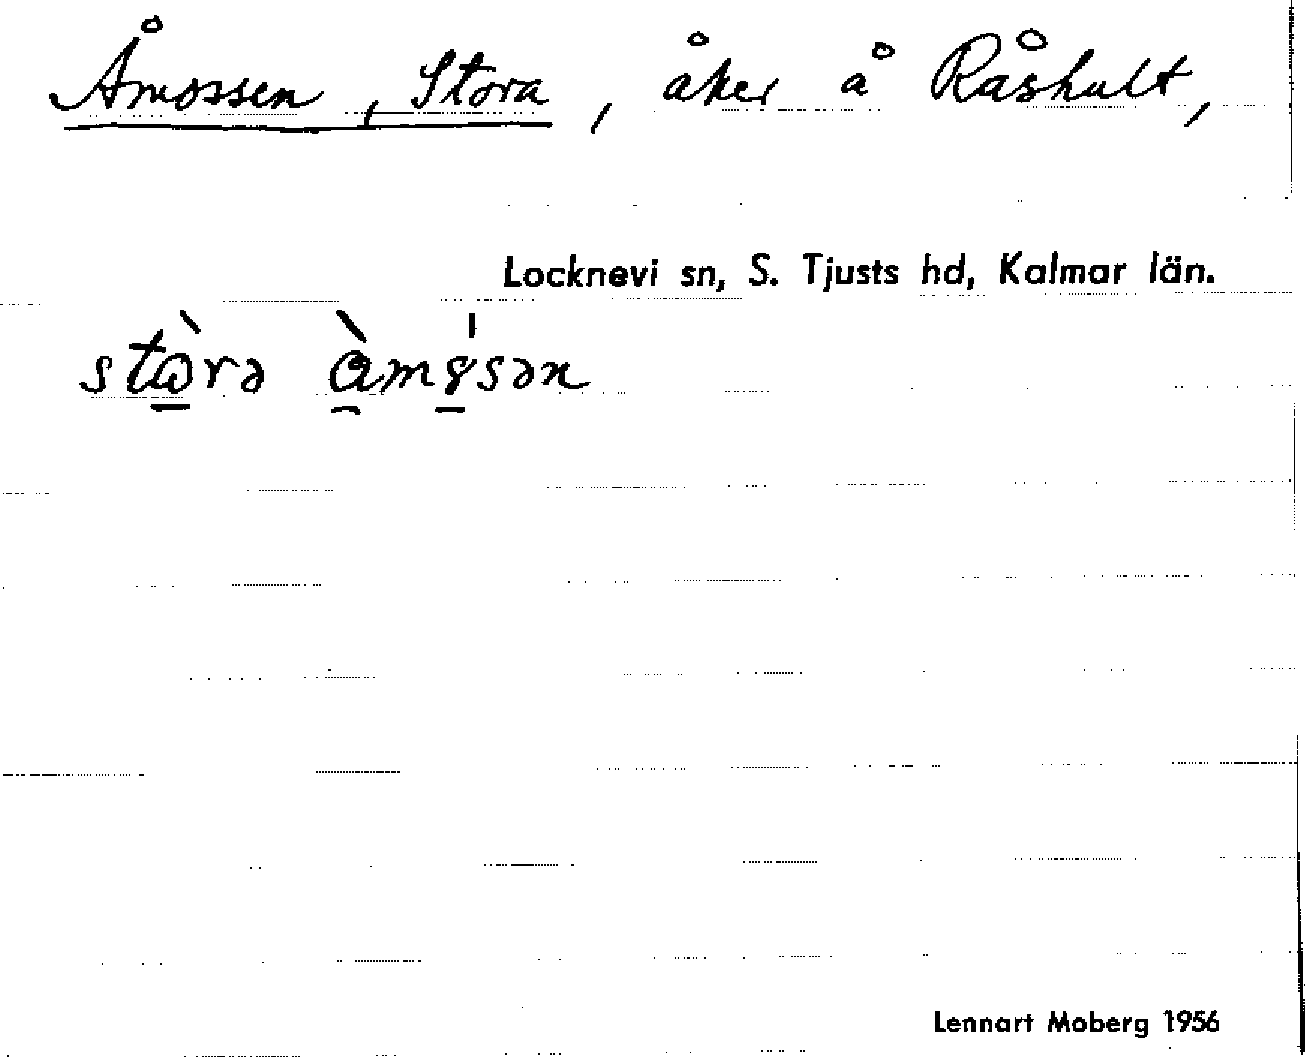 Åmossen, Stora, åker å Råshult,
Locknevi sn, S. Tjusts hd, Kalmar län.
Lennart Moberg 1956